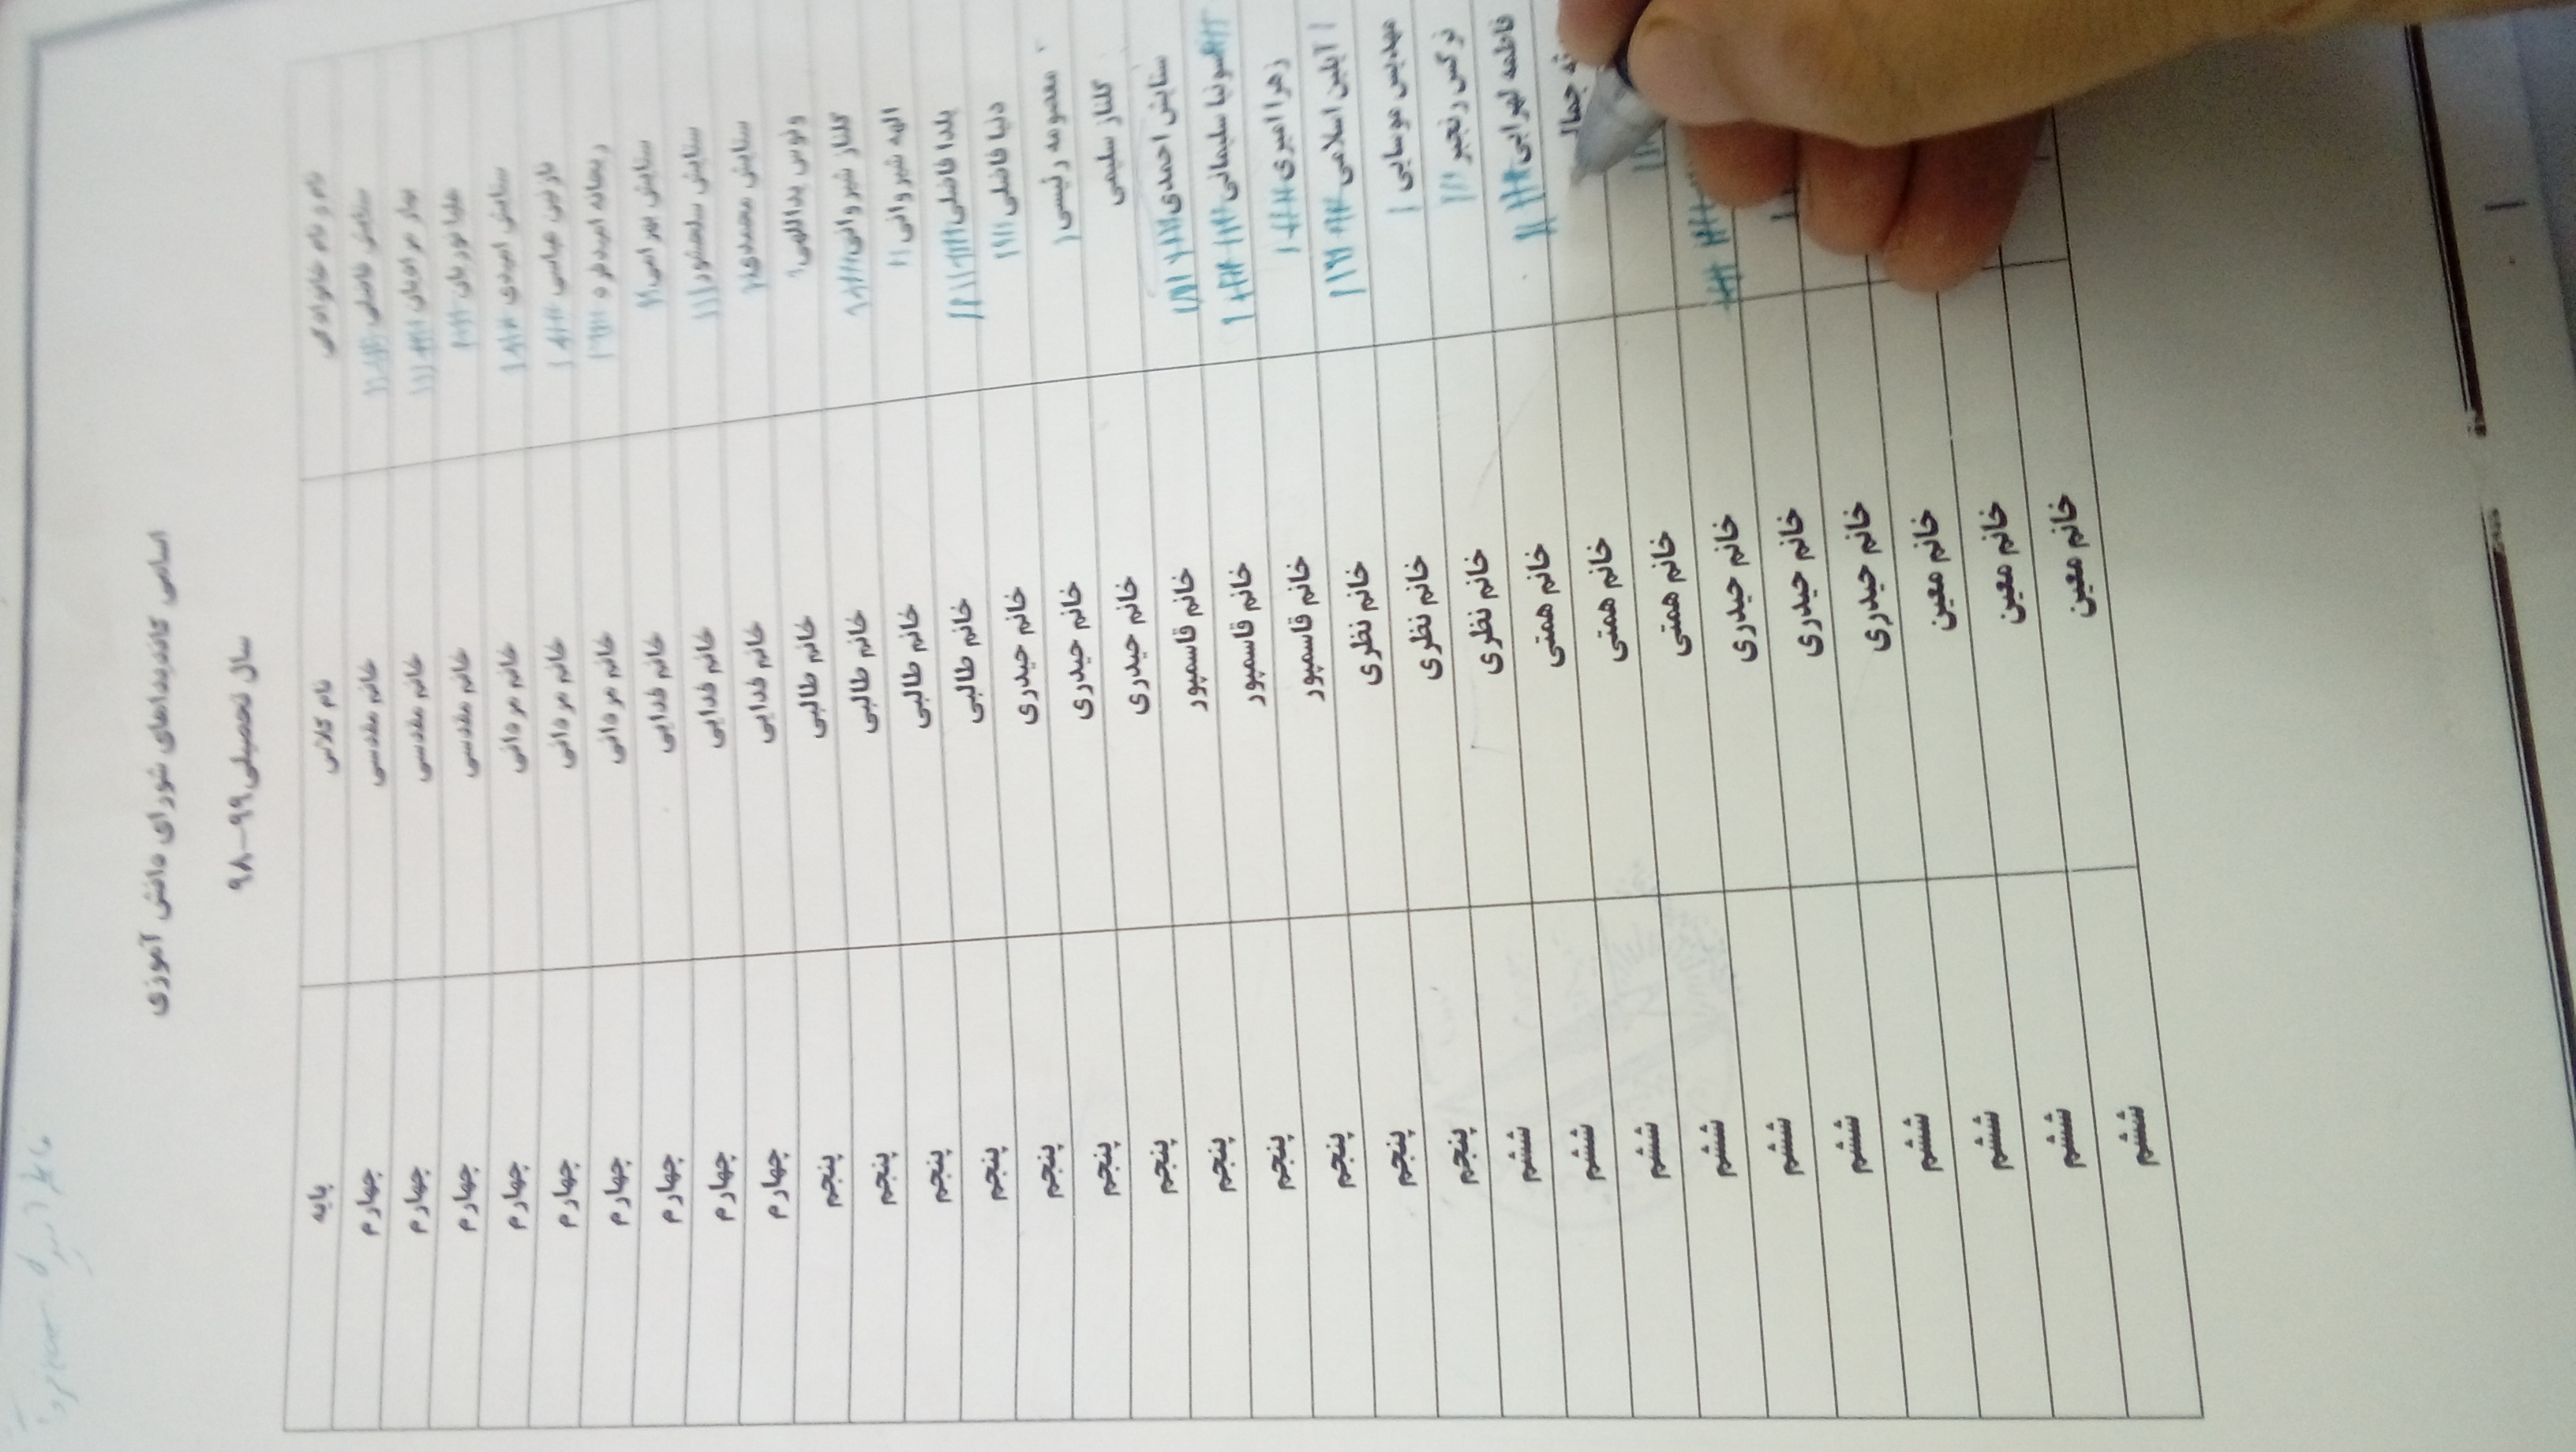 اسامی کاندیداهای شورای دانش آموزی
سال تحصیلی ۹۹-۹۸
نام و نام خانوادگی نام کلاس پایه
ستایش فاضلی خانم مقدسی چهارم
بهار مرادیان خانم مقدسی چهارم
هلیا نوریان خانم مقدسی چهارم
ستایش امیدی خانم مردانی چهارم
نازنین عباسی خانم مردانی چهارم
ریحانه امیدفرد خانم مردانی چهارم
ستایش بهرامی خانم فدایی چهارم
ستایش سلحشور خانم فدایی چهارم
ستایش محمدی خانم فدایی چهارم
ونوس یداللهی خانم طالبی پنجم
گلناز شیروانی خانم طالبی پنجم
الهه شیروانی خانم طالبی پنجم
یلدا فاضلی خانم طالبی پنجم
دنیا فاضلی خانم حیدری پنجم
معصومه رئیسی خانم حیدری پنجم
گلناز سلیمی خانم حیدری پنجم
ستایش احمدی خانم قاسمپور پنجم
سونیا سلیمانی خانم قاسمپور پنجم
زهرا امیری خانم قاسمپور پنجم
آیلین اسلامی خانم نظری پنجم
مهدیس موسایی خانم نظری پنجم
نرگس رنجبر خانم نظری ششم
فاطمه لهرابی خانم همتی ششم
خانم همتی ششم
خانم همتی ششم
خانم حیدری ششم
خانم حیدری ششم
خانم حیدری ششم
خانم معین ششم
خانم معین ششم
خانم معین ششم